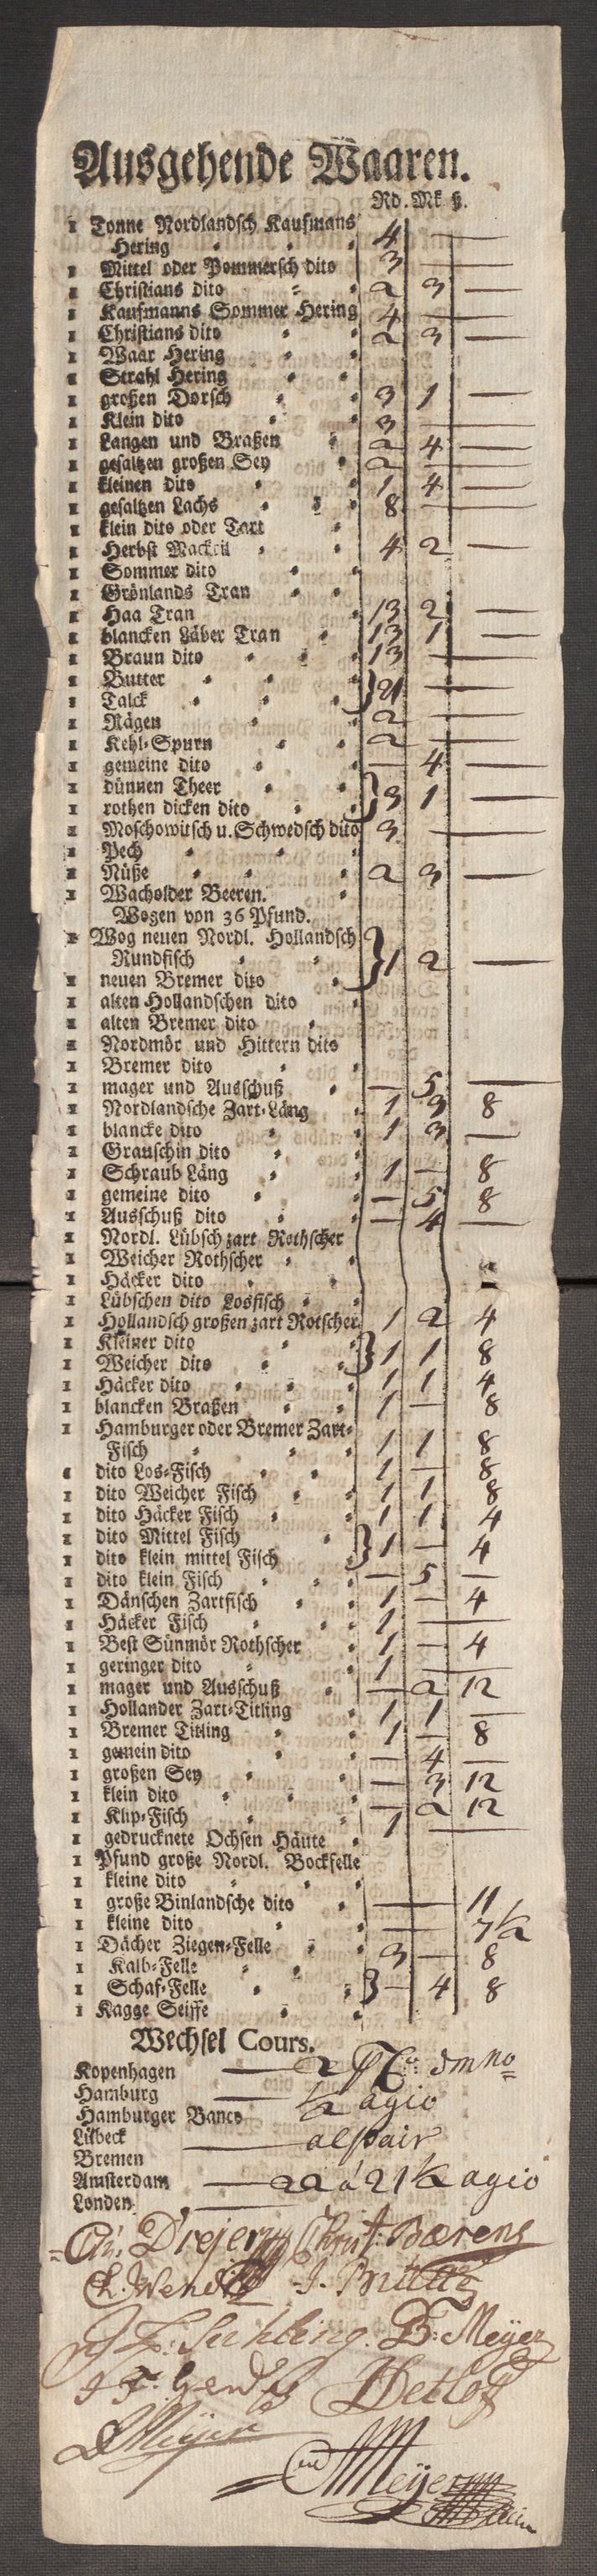 Ausgehende Waaren.
Rd. Mk ß.
1 Tonne Nordlandsch Kaufmans
Hering 4 —
1 Mittel oder Pommersch dito 3 —
1 Christians dito 2 3 —
1 Kaufmanns Sommer Hering 4 —
1 Christians dito 2 3 —
1 Waar Hering
1 Strahl Hering
1 großen Dorsch 3 1 —
1 Klein dito 3 —
1 Langen und Braßen 2 4 —
1 gesaltzen großen Sey 2 —
1 kleinen dito 1 4 —
1 gesaltzen Lachs 8 —
1 klein dito oder Tart
1 Herbst Mackril 4 2 —
1 Sommer dito
1 Grönlands Tran
1 Haa Tran 13 2 —
1 blancken Läber Tran 13 1 —
1 Braun dito 13 —
1 Butter
1 Talck } 21 —
1 Rägen 2 —
1 Kehl-Spurn 2 —
1 gemeine dito — 4 —
1 dünnen Theer
1 rothen dicken dito } 3 1 —
1 Moschowitsch u. Schwedsch dito 3 —
1 Pech
1 Nüße 2 3 —
1 Wacholder Beeren.
Wogen von 36 Pfund.
1 Wog neuen Nordl. Hollandsch
Rundfisch } 1 2 —
1 neuen Bremer dito
1 alten Hollandschen dito
1 alten Bremer dito
1 Nordmör und Hittern dito
1 Bremer dito
1 mager und Ausschuß — 5 —
1 Nordlandsche Zart-Läng 1 3 8
1 blancke dito 1 3 —
1 Grauschin dito
1 Schraub Läng 1 — 8
1 gemeine dito — 5 8
1 Ausschuß dito — 4 —
1 Nordl. Lübsch zart Rothscher
1 Weicher Rothscher
1 Häcker dito
1 Lübschen dito Losfisch
1 Hollandsch großen zart Rotscher 1 2 4
1 Kleiner dito
1 Weicher dito } 1 1 8
1 Häcker dito 1 1 4
1 blancken Braßen 1 — 8
1 Hamburger oder Bremer Zart-
Fisch 1 1 8
1 dito Los-Fisch 1 — 8
1 dito Weicher Fisch 1 1 8
1 dito Häcker Fisch 1 1 4
1 dito Mittel Fisch
1 dito klein mittel Fisch } 1 — 4
1 dito klein Fisch — 5 —
1 Dänschen Zartfisch 1 — 4
1 Häcker Fisch 1 —
1 Best Sünmör Rothscher 1 — 4
1 geringer dito 1 —
1 mager und Ausschuß — 2 12
1 Hollander Zart-Titling 1 1 —
1 Bremer Titling 1 — 8
1 gemein dito — 4 —
1 großen Sey — 3 12
1 klein dito — 2 12
1 Klip-Fisch 1 —
1 gedrucknete Ochsen Häute
1 Pfund große Nordl. Bockfelle
1 kleine dito
1 große Binlandsche dito — 11
1 kleine dito — 7 1/2
1 Dächer Ziegen-Felle 3 — 8
1 Kalb-Felle
1 Schaf-Felle } — 4 8
1 Kagge Seiffe
Wechsel Cours.
Kopenhagen — 2 p Co: dmno
Hamburg — 1/2 agio
Hamburger Banco
Lübeck — alpair
Bremen
Amsterdam — 20 a 21 1/2 agio
Londen. —
Drejer Christ: Bærens
Ch. Wendt J.
Suhling. B: Meÿer
J F: Gerdes Detlof
D Meÿer
Meÿer